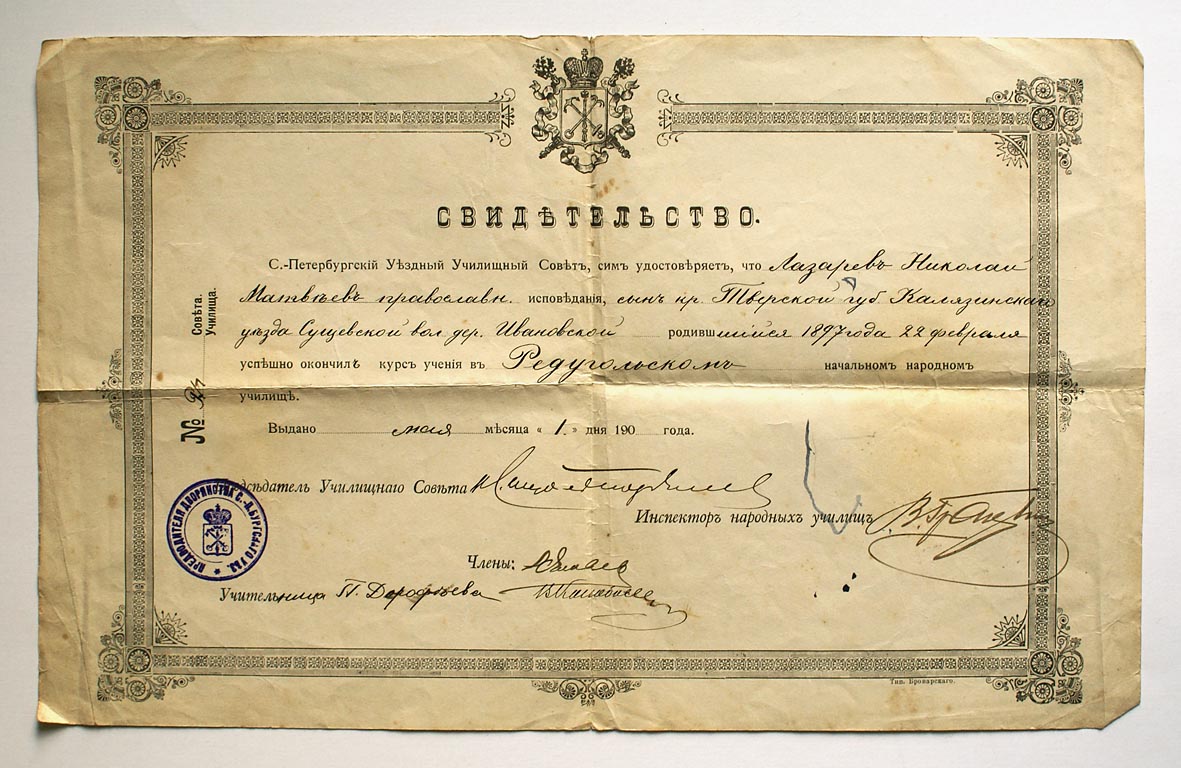 СВИДѢТЕЛЬСТВО.
С.-Петербургскій Уѣздный Училищный Совѣтъ, симъ удостовѣряетъ, что Лазаревъ Николай
Матвѣевъ православн. исповѣданія, сынъ кр. Тверской губ. Калязинскаго
уѣзда Сущевской вол. дер. Ивановской родившійся 1897 года 22 февраля
успѣшно окончилъ курсъ ученія въ Редугольскомъ начальномъ народномъ
училищѣ.
Совѣта.
Училища.
№
Выдано мая мѣсяца « 1. » дня 190 года.
Предсѣдатель Училищнаго Совѣта
Инспекторъ народныхъ училищъ
Члены:
Учительница П. Дорофѣева
ПРЕДВОДИТЕЛЯ ДВОРЯНСТВА С.-П.БУРГСКАГО УѢЗ.
Тип. Броварскаго.